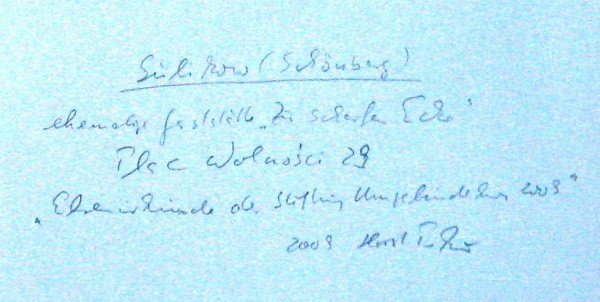 Sulikow (Schönberg)
ehemalige Gaststätte „Zur scharfen Ecke"
Plac Wolności 29
„Ehrenurkunde der Stiftung Umgebindehaus 2009"
2009 Horst